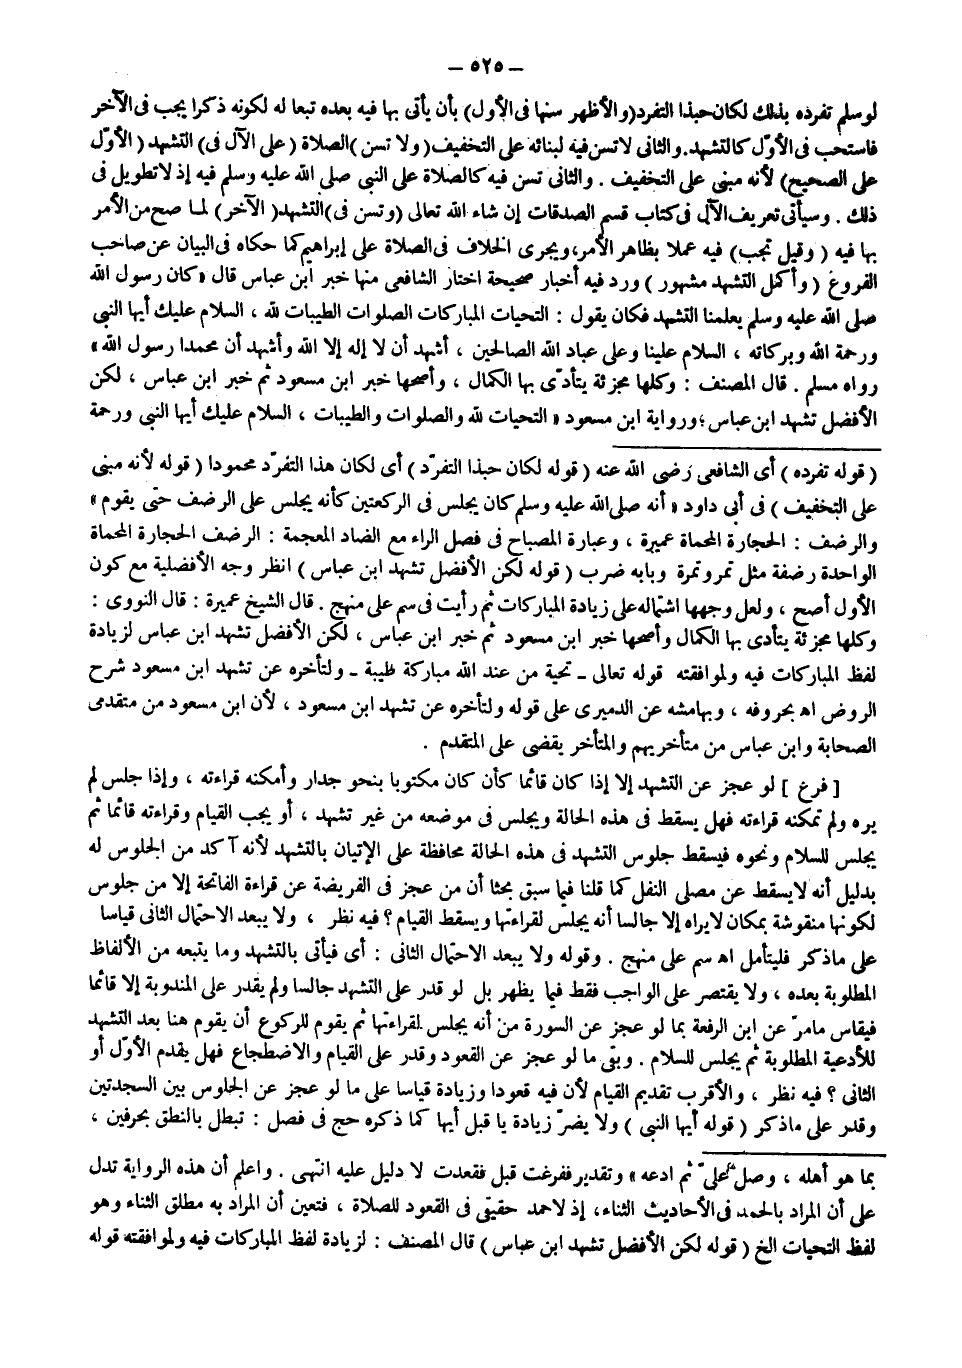 – ٥٢٥ –
لو سلم تفرده بذلك لكان حبذا التفرد (والأظهر سنها فى الأول) بأن يأتى بها فيه بعده تبعا له لكونه ذكرا يجب فى الآخر
فاستحب فى الأوّل كالتشهد. والثانى لاتسن فيه لبنائه على التخفيف (ولا تسن) الصلاة (على الآل فى) التشهد (الأوّل
على الصحيح) لأنه مبنى على التخفيف . والثانى تسن فيه كالصلاة على النبى صلى الله عليه وسلم فيه إذ لاتطويل فى
ذلك . وسيأتى تعريف الآل فى كتاب قسم الصدقات إن شاء الله تعالى (وتسن فى) التشهد (الآخر) لما صح من الأمر
بها فيه (وقيل تجب) فيه عملا بظاهر الأمر، ويجرى الخلاف فى الصلاة على إبراهيم كما حكاه فى البيان عن صاحب
الفروع (وأكمل التشهد مشهور) ورد فيه أخبار صحيحة اختار الشافعى منها خبر ابن عباس قال «كان رسول الله
صلى الله عليه وسلم يعلمنا التشهد فكان يقول : التحيات المباركات الصلوات الطيبات لله ، السلام عليك أيها النبى
ورحمة الله وبركاته ، السلام علينا وعلى عباد الله الصالحين ، أشهد أن لا إله إلا الله وأشهد أن محمدا رسول الله»
رواه مسلم . قال المصنف : وكلها مجزئة يتأدّى بها الكمال ، وأصحها خبر ابن مسعود ثم خبر ابن عباس ، لكن
الأفضل تشهد ابن عباس؛ ورواية ابن مسعود «التحيات لله والصلوات والطيبات ، السلام عليك أيها النبى ورحمة
(قوله تفرده) أى الشافعى رضى الله عنه (قوله لكان حبذا التفرّد) أى لكان هذا التفرّد محمودا (قوله لأنه مبنى
على التخفيف) فى أبى داود «أنه صلى الله عليه وسلم كان يجلس فى الركعتين كأنه يجلس على الرضف حتى يقوم»
والرضف : الحجارة المحماة عميرة ، وعبارة المصباح فى فصل الراء مع الضاد المعجمة : الرضف الحجارة المحماة
الواحدة رضفة مثل تمر وتمرة وبابه ضرب (قوله لكن الأفضل تشهد ابن عباس) انظر وجه الأفضلية مع كون
الأول أصح ، ولعل وجهها اشتماله على زيادة المباركات ثم رأيت فى سم على منهج . قال الشيخ عميرة : قال النووى :
وكلها مجزئة يتأدى بها الكمال وأصحها خبر ابن مسعود ثم خبر ابن عباس ، لكن الأفضل تشهد ابن عباس لزيادة
لفظ المباركات فيه ولموافقته قوله تعالى ـ تحية من عند الله مباركة طيبة ـ ولتأخره عن تشهد ابن مسعود شرح
الروض اه بحروفه ، وبهامشه عن الدميرى على قوله ولتأخره عن تشهد ابن مسعود ، لأن ابن مسعود من متقدمى
الصحابة وابن عباس من متأخريهم والمتأخر يقضى على المتقدم .
[ فرع ] لو عجز عن التشهد إلا إذا كان قائما كأن كان مكتوبا بنحو جدار وأمكنه قراءته ، وإذا جلس لم
يره ولم تمكنه قراءته فهل يسقط فى هذه الحالة ويجلس فى موضعه من غير تشهد ، أو يجب القيام وقراءته قائما ثم
يجلس للسلام ونحوه فيسقط جلوس التشهد فى هذه الحالة محافظة على الإتيان بالتشهد لأنه آكد من الجلوس له
بدليل أنه لايسقط عن مصلى النفل كما قلنا فيما سبق بحثا أن من عجز فى الفريضة عن قراءة الفاتحة إلا من جلوس
لكونها منقوشة بمكان لايراه إلا جالسا أنه يجلس لقراءتها ويسقط القيام؟ فيه نظر ، ولا يبعد الاحتمال الثانى قياسا
على ماذكر فليتأمل اه سم على منهج . وقوله ولا يبعد الاحتمال الثانى : أى فيأتى بالتشهد وما يتبعه من الألفاظ
المطلوبة بعده ، ولا يقتصر على الواجب فقط فيما يظهر بل لو قدر على التشهد جالسا ولم يقدر على المندوبة إلا قائما
فيقاس مامرّ عن ابن الرفعة بما لو عجز عن السورة من أنه يجلس لقراءتها ثم يقوم للركوع أن يقوم هنا بعد التشهد
للأدعية المطلوبة ثم يجلس للسلام . وبقى ما لو عجز عن القعود وقدر على القيام والاضطجاع فهل يقدم الأوّل أو
الثانى؟ فيه نظر ، والأقرب تقديم القيام لأن فيه قعودا وزيادة قياسا على ما لو عجز عن الجلوس بين السجدتين
وقدر على ماذكر (قوله أيها النبى) ولا يضرّ زيادة يا قبل أيها كما ذكره حج فى فصل : تبطل بالنطق بحرفين ،
بما هو أهله ، وصل علىّ ثم ادعه» وتقدير ففرغت قبل فقعدت لا دليل عليه انتهى . واعلم أن هذه الرواية تدل
على أن المراد بالحمد فى الأحاديث الثناء، إذ لاحمد حقيقى فى القعود للصلاة ، فتعين أن المراد به مطلق الثناء وهو
لفظ التحيات الخ (قوله لكن الأفضل تشهد ابن عباس) قال المصنف : لزيادة لفظ المباركات فيه ولموافقته قوله